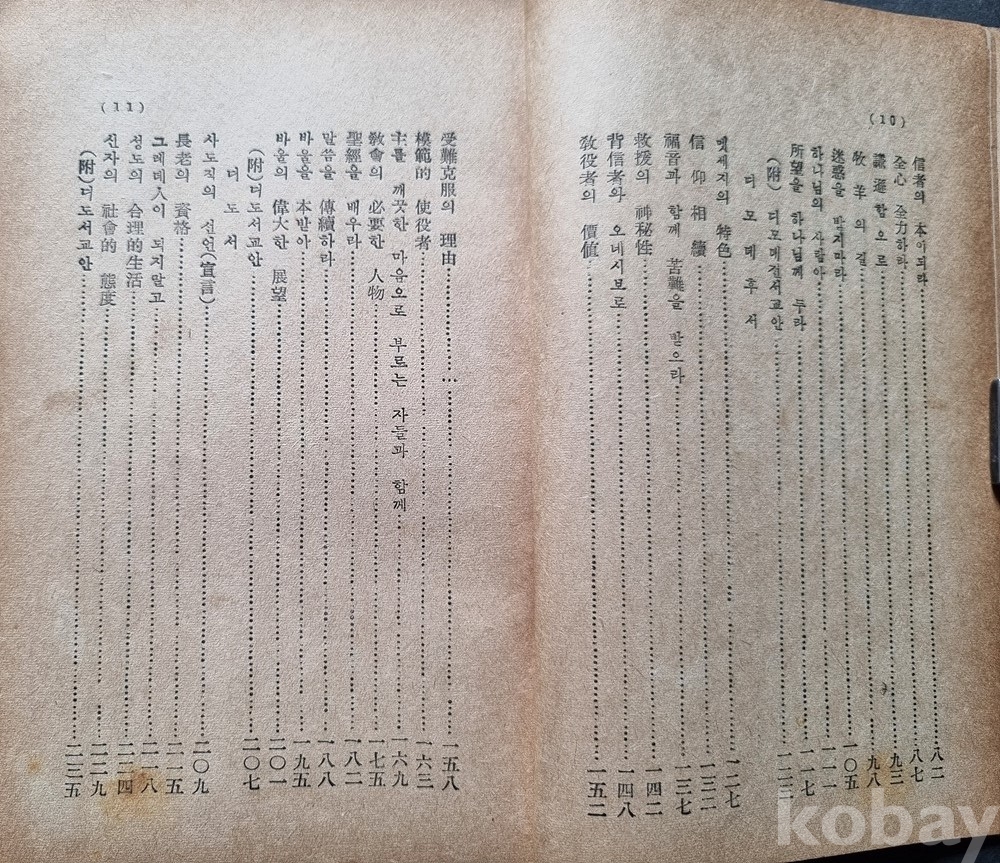 (10)
信者의 本이되라 八二
全心 全力하라 八七
謙遜함으로 九三
牧羊의길 九八
迷惑을 받지마라 一〇五
하나님의 사람아 一一一
所望을 하나님께 두라 一一七
(附) 디모데전서교안 一二三
디모데후서
멧세지의 特色 一二七
信仰相續 一三二
福音과 함께 苦難을 받으라 一三七
救援의 神秘性 一四二
背信者와 오네시보로 一四八
敎役者의 價値 一五二
(11)
受難克服의 理由 一五八
模範的 使役者 一六三
主를 깨끗한 마음으로 부르는 자들과 함께 一六九
敎會의 必要한 人物 一七五
聖經을 배우라 一八二
말씀을 傳續하라 一八八
바울을 本받아 一九五
바울의 偉大한 展望 二〇一
(附)디도서교안 二〇七
디도서
사도직의 선언(宣言) 二〇九
長老의 資格 二一五
그레데人이 되지말고 二一八
성도의 合理的生活 二二四
신자의 社會的 態度 二二九
(附)디도서교안 二三五
kobay